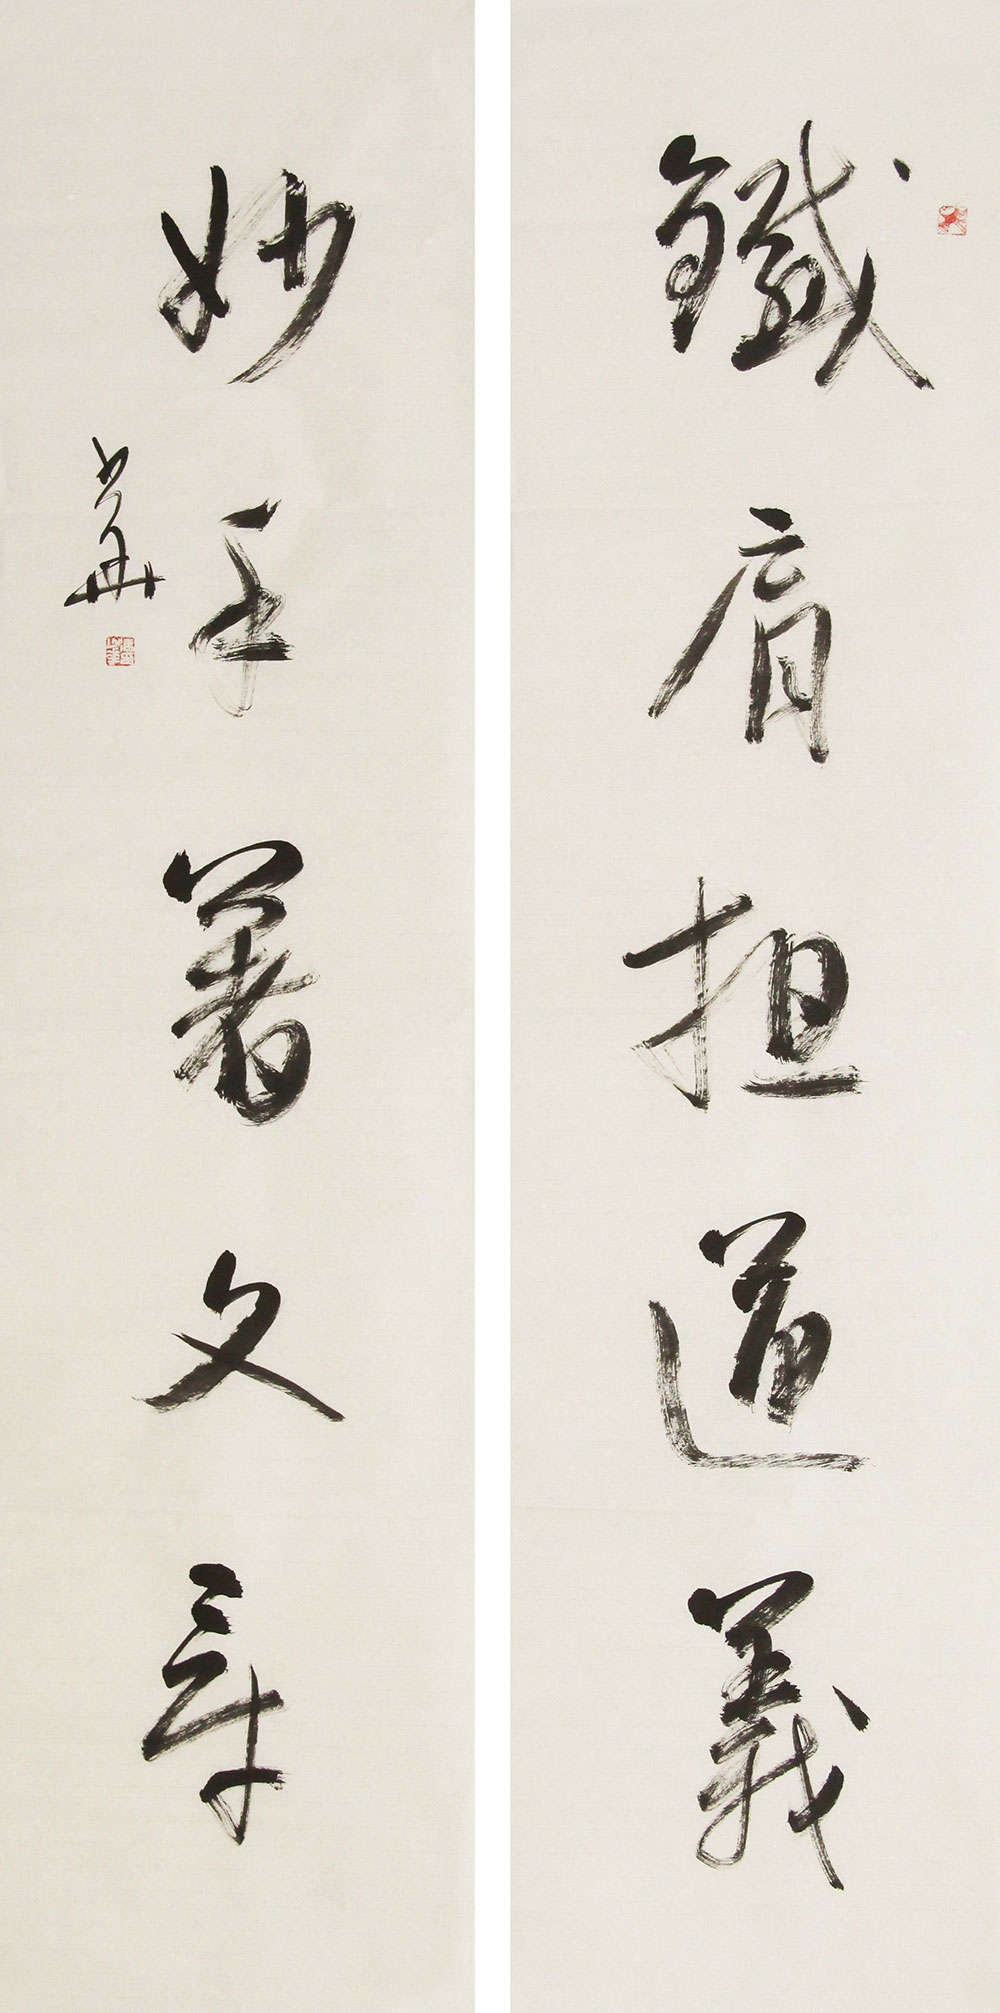 鐵肩担道義
妙手著文章